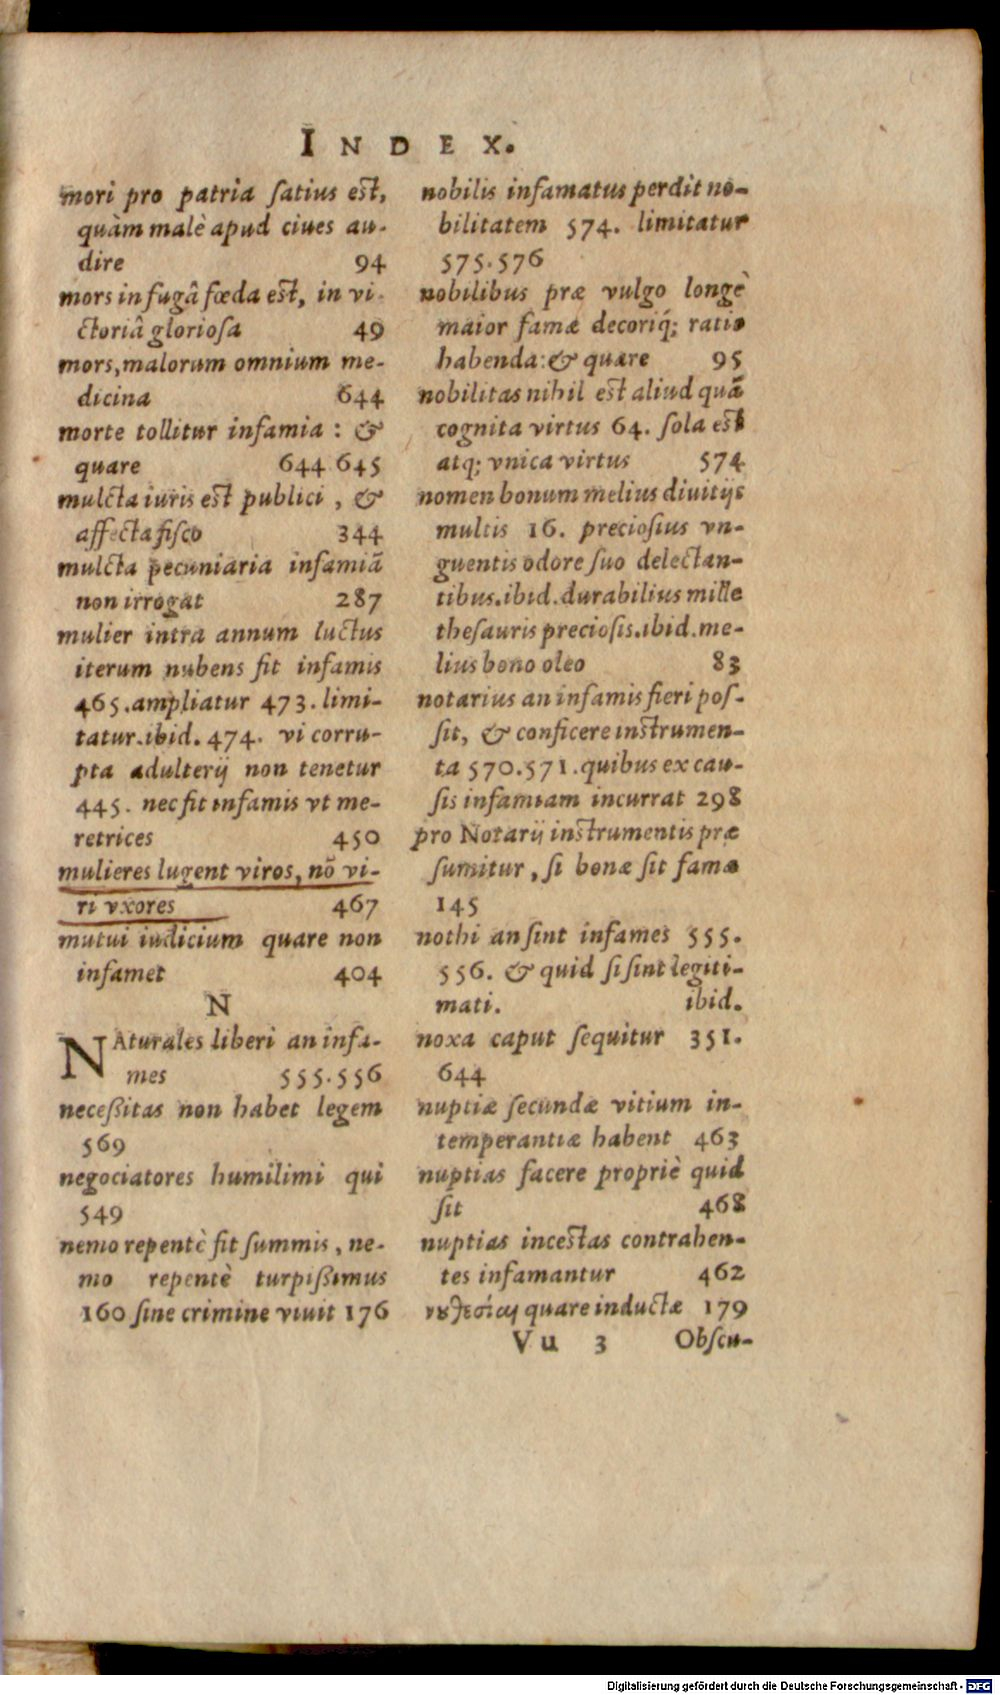 INDEX.
mori pro patria ſatius eſt,
quàm malè apud ciues au-
dire 94
mors in fugâ fœda eſt, in vi-
ctoriâ glorioſa 49
mors, malorum omnium me-
dicina 644
morte tollitur infamia : &
quare 644 645
mulcta iuris est publici , &
affecta fiſco 344
mulcta pecuniaria infamiã
non irrogat 287
mulier intra annum luctus
iterum nubens fit infamis
465. ampliatur 473. limi-
tatur. ibid. 474. vi corru-
pta adulterij non tenetur
445. nec fit infamis vt me-
retrices 450
mulieres lugent viros, nõ vi-
ri vxores 467
mutui iudicium quare non
infamet 404
N
NAturales liberi an infa-
mes 555.556
neceßitas non habet legem
569
negociatores humilimi qui
549
nemo repentè fit ſummis, ne-
mo repentè turpißimus
160 ſine crimine viuit 176
nobilis infamatus perdit no-
bilitatem 574. limitatur
575.576
nobilibus præ vulgo longè
maior famæ decoriq́; ratio
habenda: & quare 95
nobilitas nihil eſt aliud quã
cognita virtus 64. ſola eſt
atq; vnica virtus 574
nomen bonum melius diuitijs
multis 16. precioſius vn-
guentis odore ſuo delectan-
tibus. ibid. durabilius mille
theſauris precioſis. ibid. me-
lius bono oleo 83
notarius an infamis fieri poſ-
ſit, & conficere inſtrumen-
ta 570.571. quibus ex cau-
ſis infamiam incurrat 298
pro Notarij inſtrumentis præ
ſumitur, ſi bonæ ſit famæ
145
nothi an ſint infames 555.
556. & quid ſi ſint legiti-
mati. ibid.
noxa caput ſequitur 351.
644
nuptiæ ſecundæ vitium in-
temperantiæ habent 463
nuptias facere propriè quid
ſit 468
nuptias inceſtas contrahen-
tes infamantur 462
νȣθεσίαι quare inductæ 179
Vu 3 Obſcu-
Digitalisierung gefördert durch die Deutsche Forschungsgemeinschaft - DFG